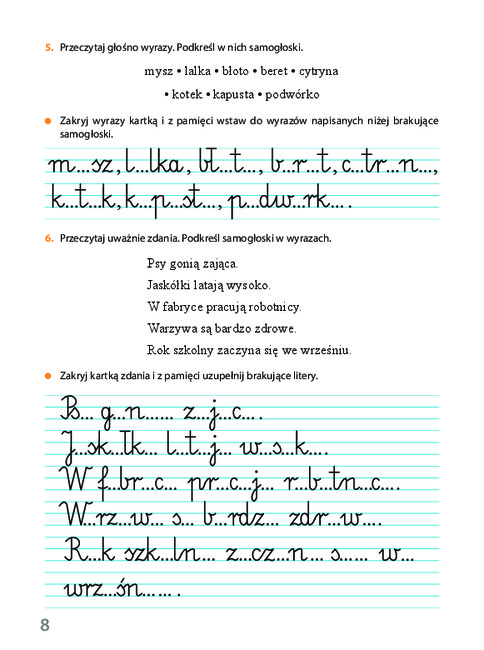 5. Przeczytaj głośno wyrazy. Podkreśl w nich samogłoski.
mysz • lalka • błoto • beret • cytryna
• kotek • kapusta • podwórko
● Zakryj wyrazy kartką i z pamięci wstaw do wyrazów napisanych niżej brakujące
samogłoski.
m...sz, l...lka, bł...t..., b...r...t, c...tr...n...,
k...t...k, k...p...st..., p...dw...rk... .
6. Przeczytaj uważnie zdania. Podkreśl samogłoski w wyrazach.
Psy gonią zająca.
Jaskółki latają wysoko.
W fabryce pracują robotnicy.
Warzywa są bardzo zdrowe.
Rok szkolny zaczyna się we wrześniu.
● Zakryj kartką zdania i z pamięci uzupełnij brakujące litery.
Ps... g...n...... z...j...c... .
J...sk...łk... l...t...j... w...s...k... .
W f...br...c... pr...c...j... r...b...tn...c... .
W...rz...w... s... b...rdz... zdr...w... .
R...k szk...ln... z...cz...n... s...... w...
wrz...śn...... .
8